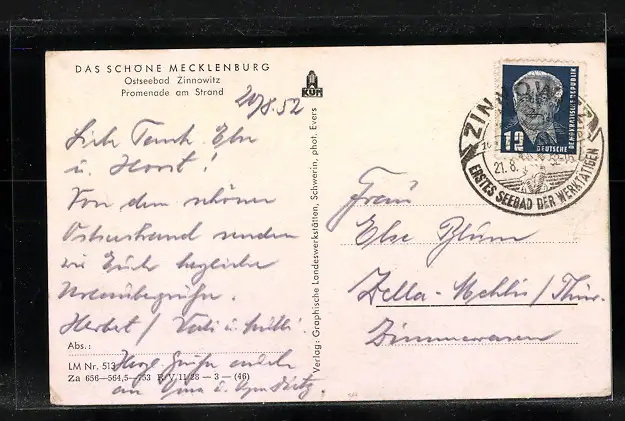 DAS SCHÖNE MECKLENBURG
Ostseebad Zinnowitz
Promenade am Strand
KÜM
20/8.52
Lieb Tante Else
u. Horst!
Von dem schönen
Ostseestrand senden
wir Euch herzliche
Urlaubsgrüße.
Herbert / u. Mutti.
Abs.:
LM Nr. 513
Za 656—564,5—753 R/V/11/28 — 3 — (46)
Herzl. Grüße auch
an Oma u. Opa
Verlag: Graphische Landeswerkstätten, Schwerin, phot. Evers
12
DEUTSCHE
DEMOKRATISCHE REPUBLIK
ZINNOWITZ
21.8.52
ERSTES SEEBAD DER WERKTÄTIGEN
Frau
Else Blum
Zella-Mehlis / Thür.
Zimmerwaren